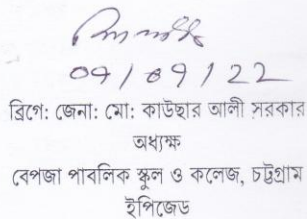 09/09/22
ব্রিগে: জেনা: মো: কাউছার আলী সরকার
অধ্যক্ষ
বেপজা পাবলিক স্কুল ও কলেজ, চট্টগ্রাম
ইপিজেড